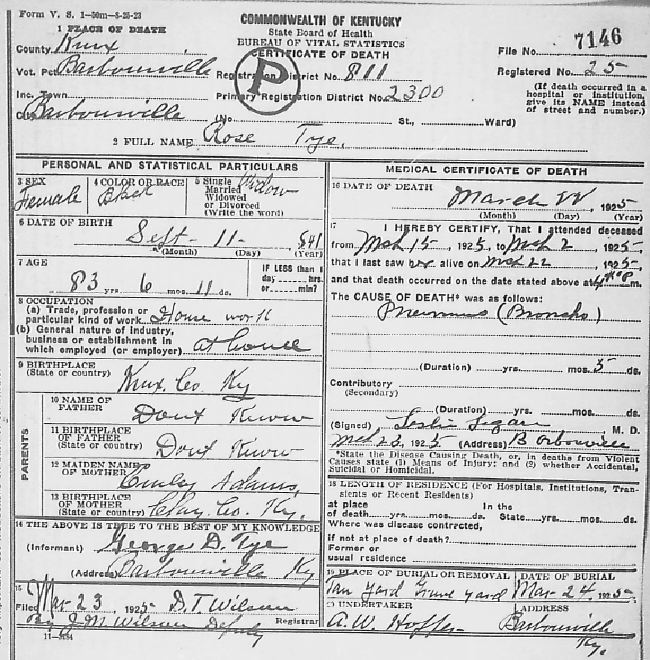 Form V. S. 1-50m-8-25-23
COMMONWEALTH OF KENTUCKY
State Board of Health
BUREAU OF VITAL STATISTICS
CERTIFICATE OF DEATH
1 PLACE OF DEATH
County Knox
File No. 7146
Vot. Pct. Barbourville
Registration District No. 811
Registered No. 25
P
Inc. Town
Primary Registration District No. 2300
(If death occurred in a hospital or institution, give its NAME instead of street and number.)
City Barbourville (No. St., Ward)
2 FULL NAME Rose Tye.
PERSONAL AND STATISTICAL PARTICULARS
3 SEX
Female
4 COLOR OR RACE
5 Single
Married
Widowed
or Divorced
(Write the word)
Widow
6 DATE OF BIRTH
Sept- 11- 841
(Month) (Day) (Year)
7 AGE
83 yrs. 6 mos. 11 ds.
IF LESS than 1
day hrs.
or min?
8 OCCUPATION
(a) Trade, profession or
particular kind of work House work
(b) General nature of industry,
business or establishment in
which employed (or employer) at house
9 BIRTHPLACE
(State or country) Knox. Co. Ky
PARENTS
10 NAME OF
FATHER Dont Know
11 BIRTHPLACE
OF FATHER
(State or country) Dont Know
12 MAIDEN NAME
OF MOTHER Emily Adams,
13 BIRTHPLACE
OF MOTHER
(State or country) Clay. Co. Ky.
14 THE ABOVE IS TRUE TO THE BEST OF MY KNOWLEDGE
(Informant) George D. Tye
(Address) Barbourville Ky
15
Filed Mar 23, 1925- D. T. Wilson
Registrar
By J. M. Wilson Deputy
11-3184
MEDICAL CERTIFICATE OF DEATH
16 DATE OF DEATH
March 22, 1925
(Month) (Day) (Year)
17 I HEREBY CERTIFY, That I attended deceased
from Mch 15-, 1925, to Mch 2, 1925,
that I last saw her alive on Mch 22, 1925,
and that death occurred on the date stated above at m.
The CAUSE OF DEATH* was as follows:
(Broncho)
(Duration) yrs. mos. 5 ds.
Contributory
(Secondary)
(Duration) yrs. mos. ds.
(Signed) Leslie Logan M. D.
Mch 23, 1925 (Address) Barbourville
*State the Disease Causing Death, or, in deaths from Violent
Causes state (1) Means of Injury; and (2) whether Accidental,
Suicidal or Homicidal.
18 LENGTH OF RESIDENCE (For Hospitals, Institutions, Tran-
sients or Recent Residents)
at place In the
of death yrs. mos. ds. State yrs. mos. ds.
Where was disease contrcted,
If not at place of death?
Former or
usual residence
19 PLACE OF BURIAL OR REMOVAL
Tan Yard Grave yard
DATE OF BURIAL
Mar- 24 1925-
20 UNDERTAKER
A. W. Hopper
ADDRESS
Barbourville
Ky.